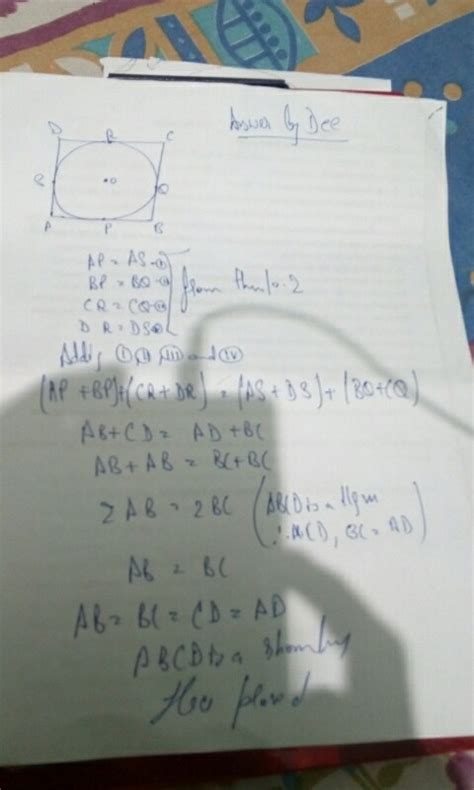 Answer by Dee
D R C
S O Q
A P B
AP = AS - (i)
BP = BQ - (ii)
CR = CQ - (iii)
DR = DS - (iv)
from thm 10.2
Adding (i), (ii), (iii) and (iv)
(AP + BP) + (CR + DR) = (AS + DS) + (BQ + CQ)
AB + CD = AD + BC
AB + AB = BC + BC
2 AB = 2 BC (ABCD is a llgm
∴ CD, BC = AD)
AB = BC
AB = BC = CD = AD
ABCD is a rhombus